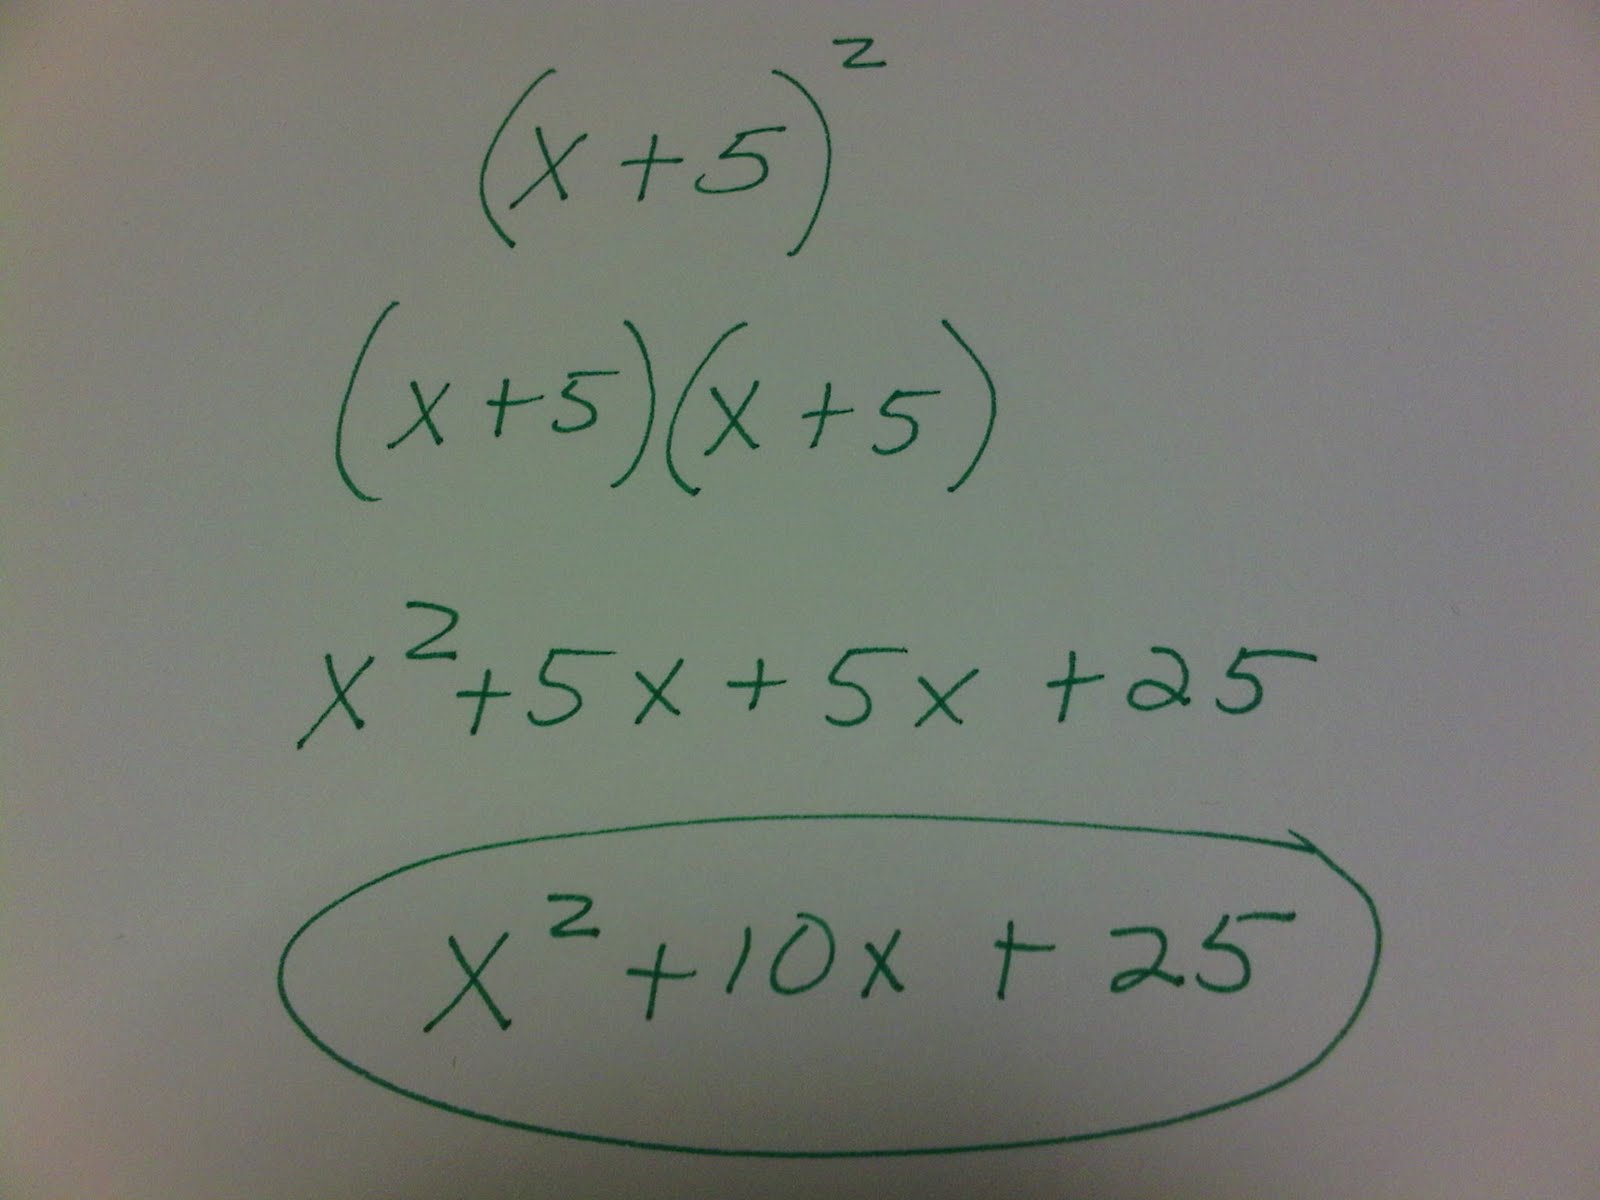 (x+5)²
(x+5)(x+5)
x²+5x+5x+25
x²+10x+25